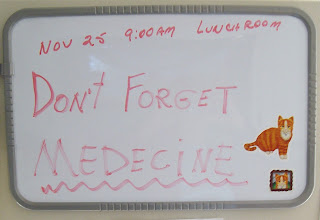 NOV 25 9:00AM LUNCHROOM
DON't FORGET
MEDECINE